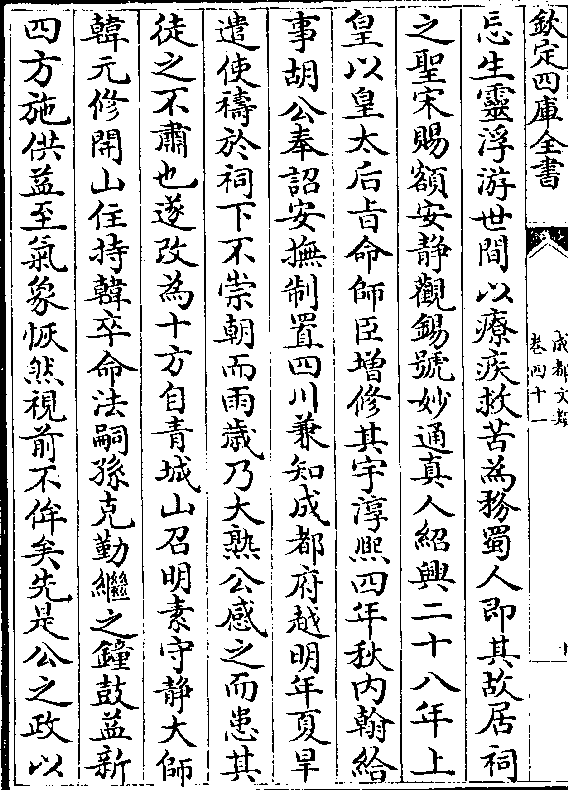 欽定四庫全書
成都文類
卷四十一
忘生靈浮游世間以療疾救苦為務蜀人即其故居祠
之聖宋賜額安静觀錫號妙通真人紹興二十八年上
皇以皇太后㫖命師臣增修其宇淳熙四年秋内翰給
事胡公奉詔安撫制置四川兼知成都府越明年夏旱
遣使禱於祠下不崇朝而雨歳乃大熟公感之而患其
徒之不肅也遂改為十方自青城山召明素守静大師
韓元修開山住持韓卒命法嗣孫克勤繼之鐘鼓益新
四方施供益至氣象恢然視前不侔矣先是公之政以